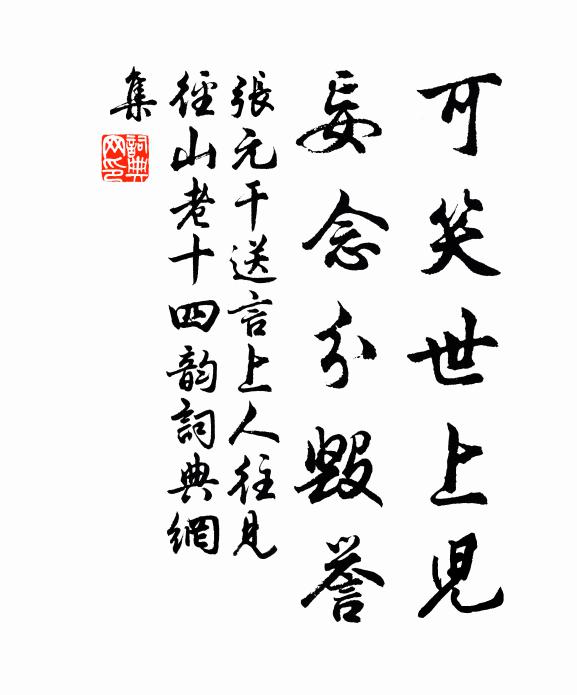 可笑世上児
妄念分毀譽
張元干送言上人往見
徑山老十四韵詞典網
集
詞典網印